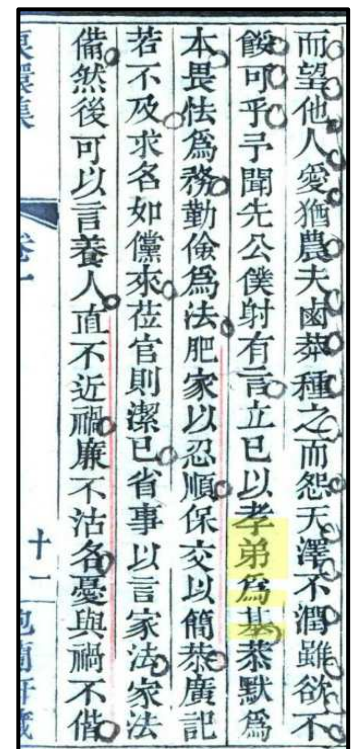 而望他人愛猶農夫鹵莽種之而怨天澤不潤雖欲不
餒可乎予聞先公僕射有言立已以孝弟爲基恭默爲
本畏怯爲務勤儉爲法肥家以忍順保交以簡恭廣記
若不及求名如儻來莅官則潔已省事以言家法家法
備然後可以言養人直不近禍廉不沽名憂與禍不偕
卷一
十二